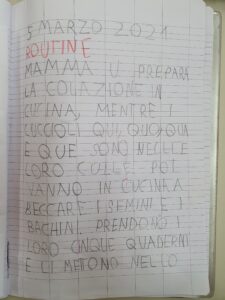 5 MARZO 2021
ROUTINE
MAMMA U PREPARA
LA COLAZIONE IN
CUCINA, MENTRE I
CUCCIOLI QUI, QUO, QUA
E QUE SONO NELLE
LORO CULLE. POI
VANNO IN CUCINA A
BECCARE I SEMINI E I
BACHINI. PRENDONO I
LORO CINQUE QUADERNI
E LI METONO NELLO